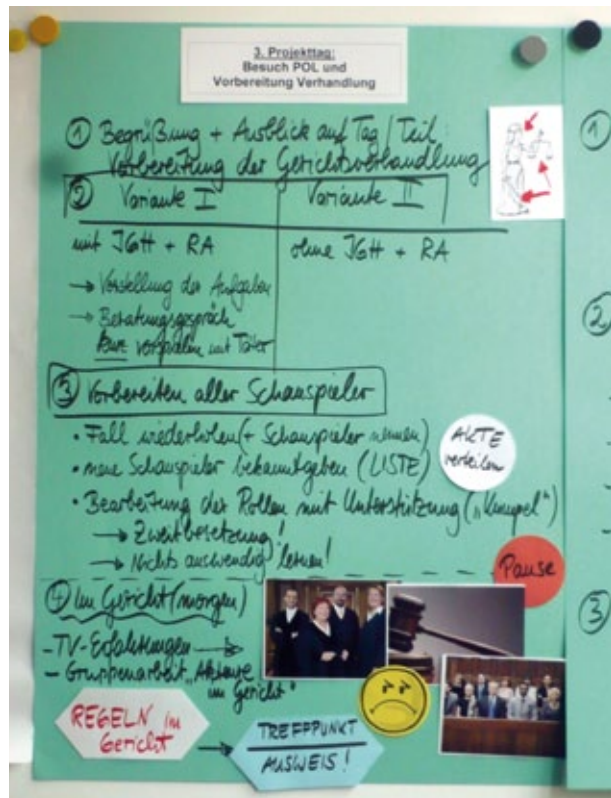 3. Projekttag:
Besuch POL und
Vorbereitung Verhandlung
① Begrüßung + Ausblick auf Tag / Teil
Vorbereitung der Gerichtsverhandlung
② Variante I
Variante II
mit JGH + RA
ohne JGH + RA
→ Vorstellung der Aufgaben
→ Beratungsgespräch
kurz vorspielen mit Täter
③ Vorbereiten aller Schauspieler
• Fall wiederholen (+ Schauspieler nennen)
• neue Schauspieler bekanntgeben (LISTE)
AKTE
verteilen
• Bearbeitung der Rollen mit Unterstützung („Kumpel“)
→ Zweitbesetzung!
→ Nichts auswendig lernen!
Pause
④ Im Gericht (morgen)
- TV-Erfahrungen →
- Gruppenarbeit „Akteure
im Gericht“
REGELN im
Gericht
→ TREFFPUNKT
AUSWEIS!
①
②
③